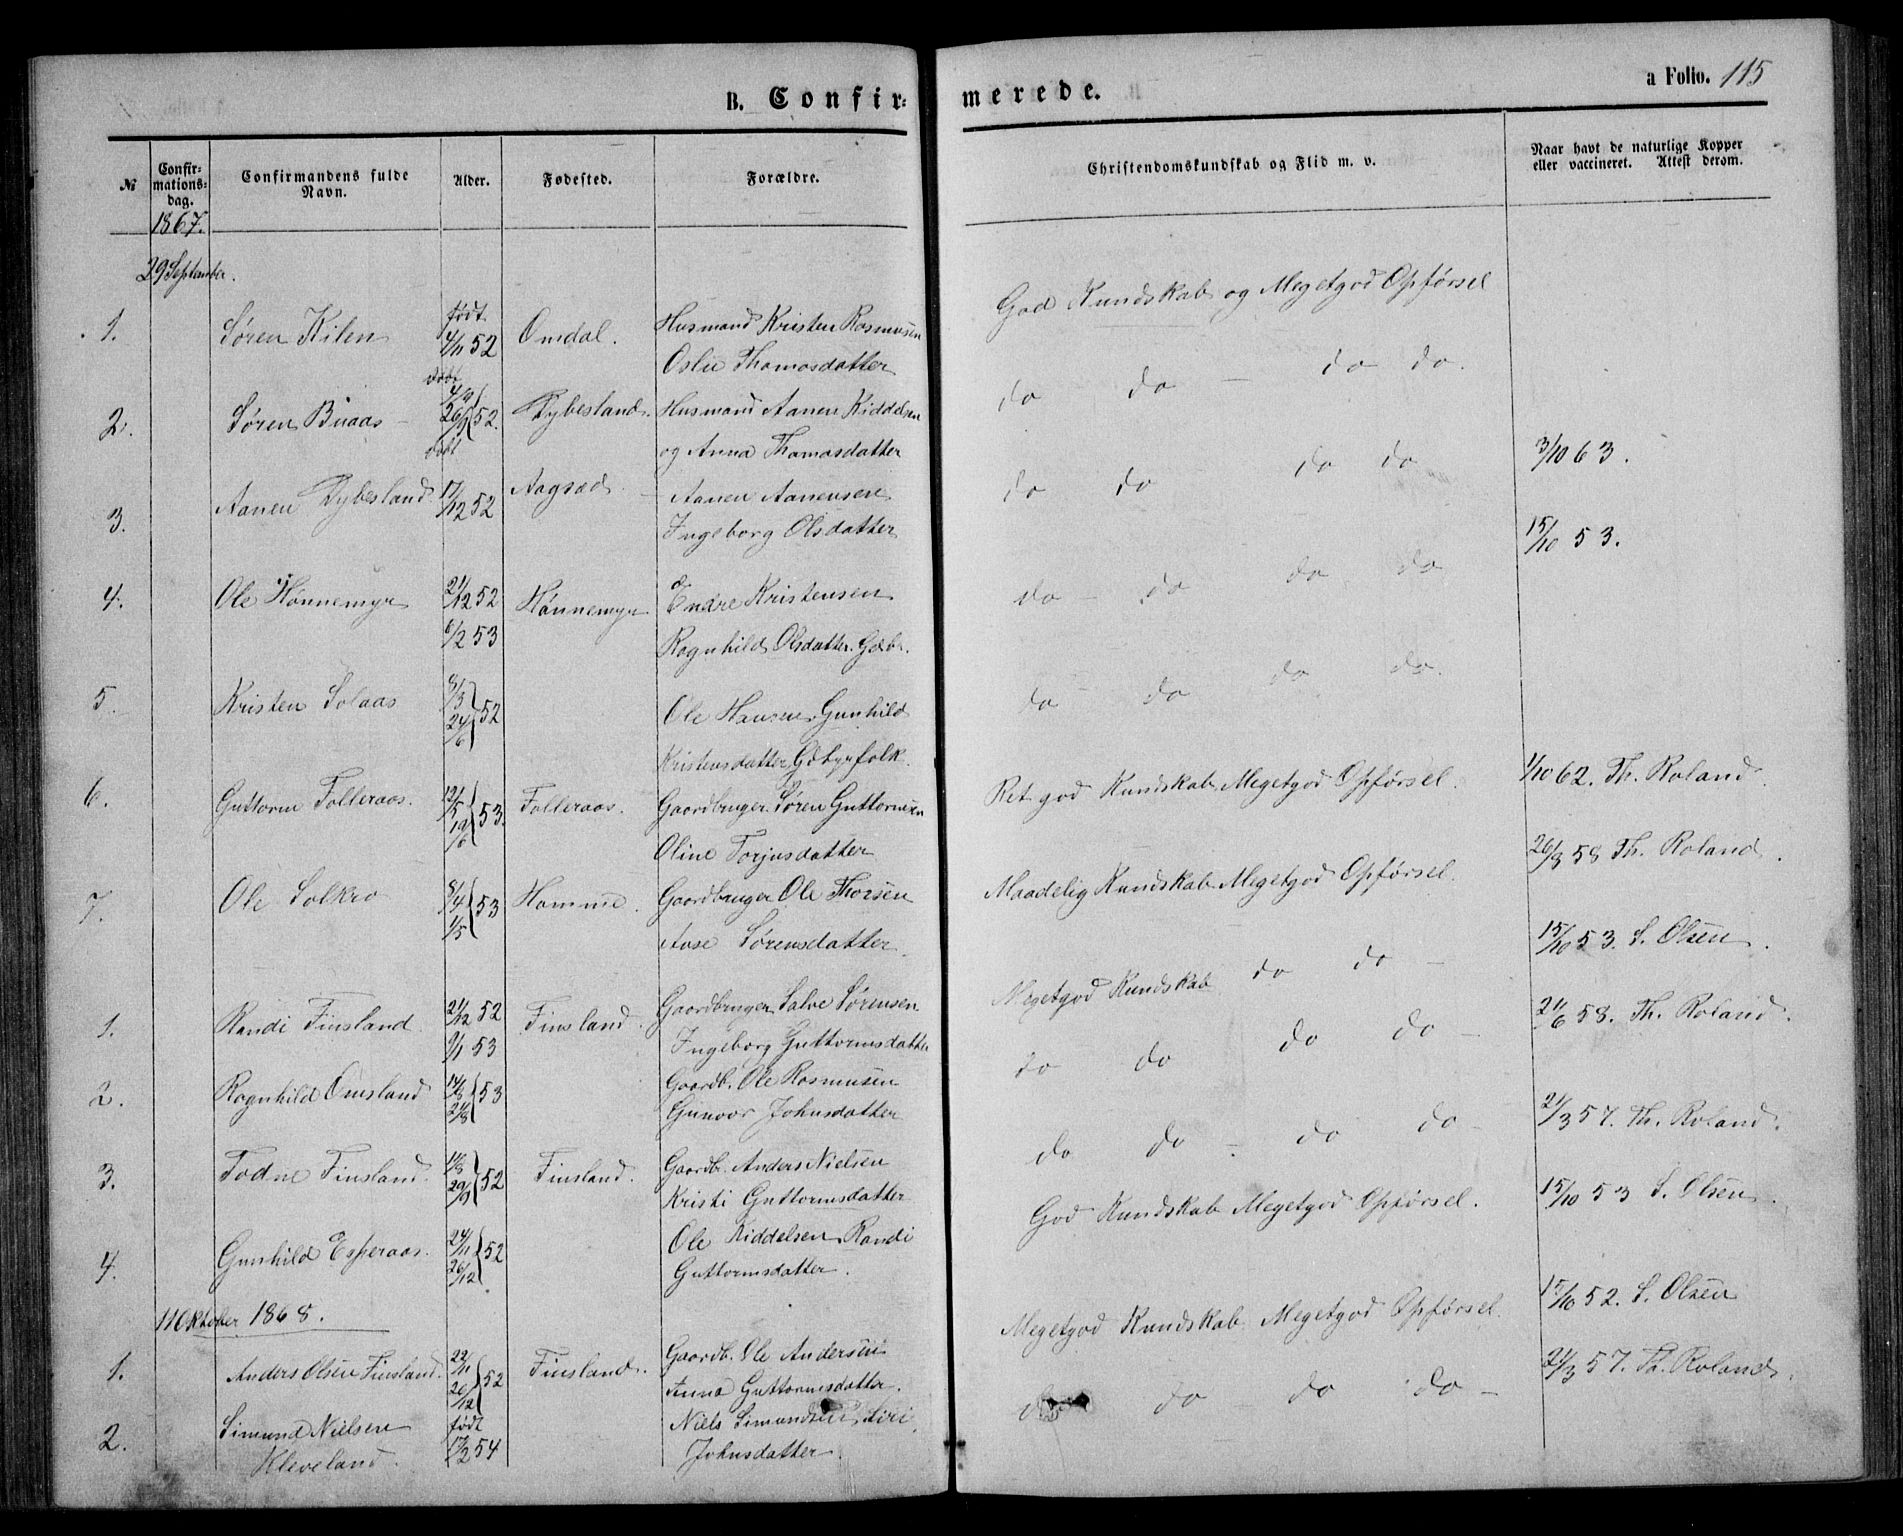 B. Confir-
merede.
a Folio. 115
№
Confir-
mations-
dag.
Confirmandens fulde
Navn.
Alder.
Fødested.
Forældre.
Christendomskundskab og Flid m. v.
Naar havt de naturlige Kopper
eller vaccineret. Attest derom.
1867.
29 September.
1. Søren Kilen født 4/11 52 Omdal. Husmand Kristen Rasmusen
Oslu Thomasdatter
God Kundskab og Megetgod Opførsel
2. Søren Buaas 26/9 52. Dybesland. Husmand Aanen Kiddelsen
og Anna Thomasdatter
do do - do do.
3. Aanen Dybesland 17/12 52 Aagsæd Aanen Aanensen
Ingeborg Olsdatter
do do do do 3/10 63.
4. Ole Hønnemyr 21/12 52 Hønnemyr Endre Kristensen
6/2 53 Ragnhild Olsdatter. Gdbr.
do - do do do 15/10 53.
5. Kristen Solaas 8/3 24/6 52 Ole Hansen, Gunhild
Kristensdatter Gdbrfolk
do - do do do.
6. Guttorm Folleraas. 12/5 19/6 53. Folleraas. Gaardbruger Søren Guttormsen
Oline Torjusdatter
Ret god Kundskab Megetgod Opførsel. 1/10 62. Th. Roland
7. Ole Solkro 8/4 1/5 53 Homme. Gaardbruger Ole Thorsen
Aase Sørensdatter
Maadelig Kundskab Megetgod Opførsel. 26/3 58 Th. Roland.
1. Randi Finsland. 21/12 52 Finsland. Gaardbruger Salve Sørensen
9/1 53 Ingeborg Guttormsdatter
Megetgod Kundskab do do - 15/10 53. S. Olsen.
2. Ragnhild Omsland 53 Gaardb. Ole Rasmusen
Gunvor Johnsdatter
do do do do - 21/6 58. Th. Roland.
3. Todne Finsland. 29/9 52 Finsland. Gaardb. Anders Nielsen
Kristi Guttormsdatter
do do - do do - 21/3 57. Th. Roland.
4. Gunhild Esperaas. 24/11 26/12 52 Ole Kiddelsen Randi
Guttormsdatter.
God Kundskab Megetgod Opførsel. 15/10 53 S. Olsen.
11 Oktober 1868.
1. Anders Olsen Finsland. 22/11 26/12 52 Finsland. Gaardb. Ole Andersen
Anna Guttormsdatter.
Megetgod Kundskab. Megetgod Opførsel 15/10 52. S. Olsen
2. Simund Nielsen født Niels Simundsen Siri
Kleveland. 17/2 54 Johnsdatter.
do do do do - 21/3 57. Th. Roland.